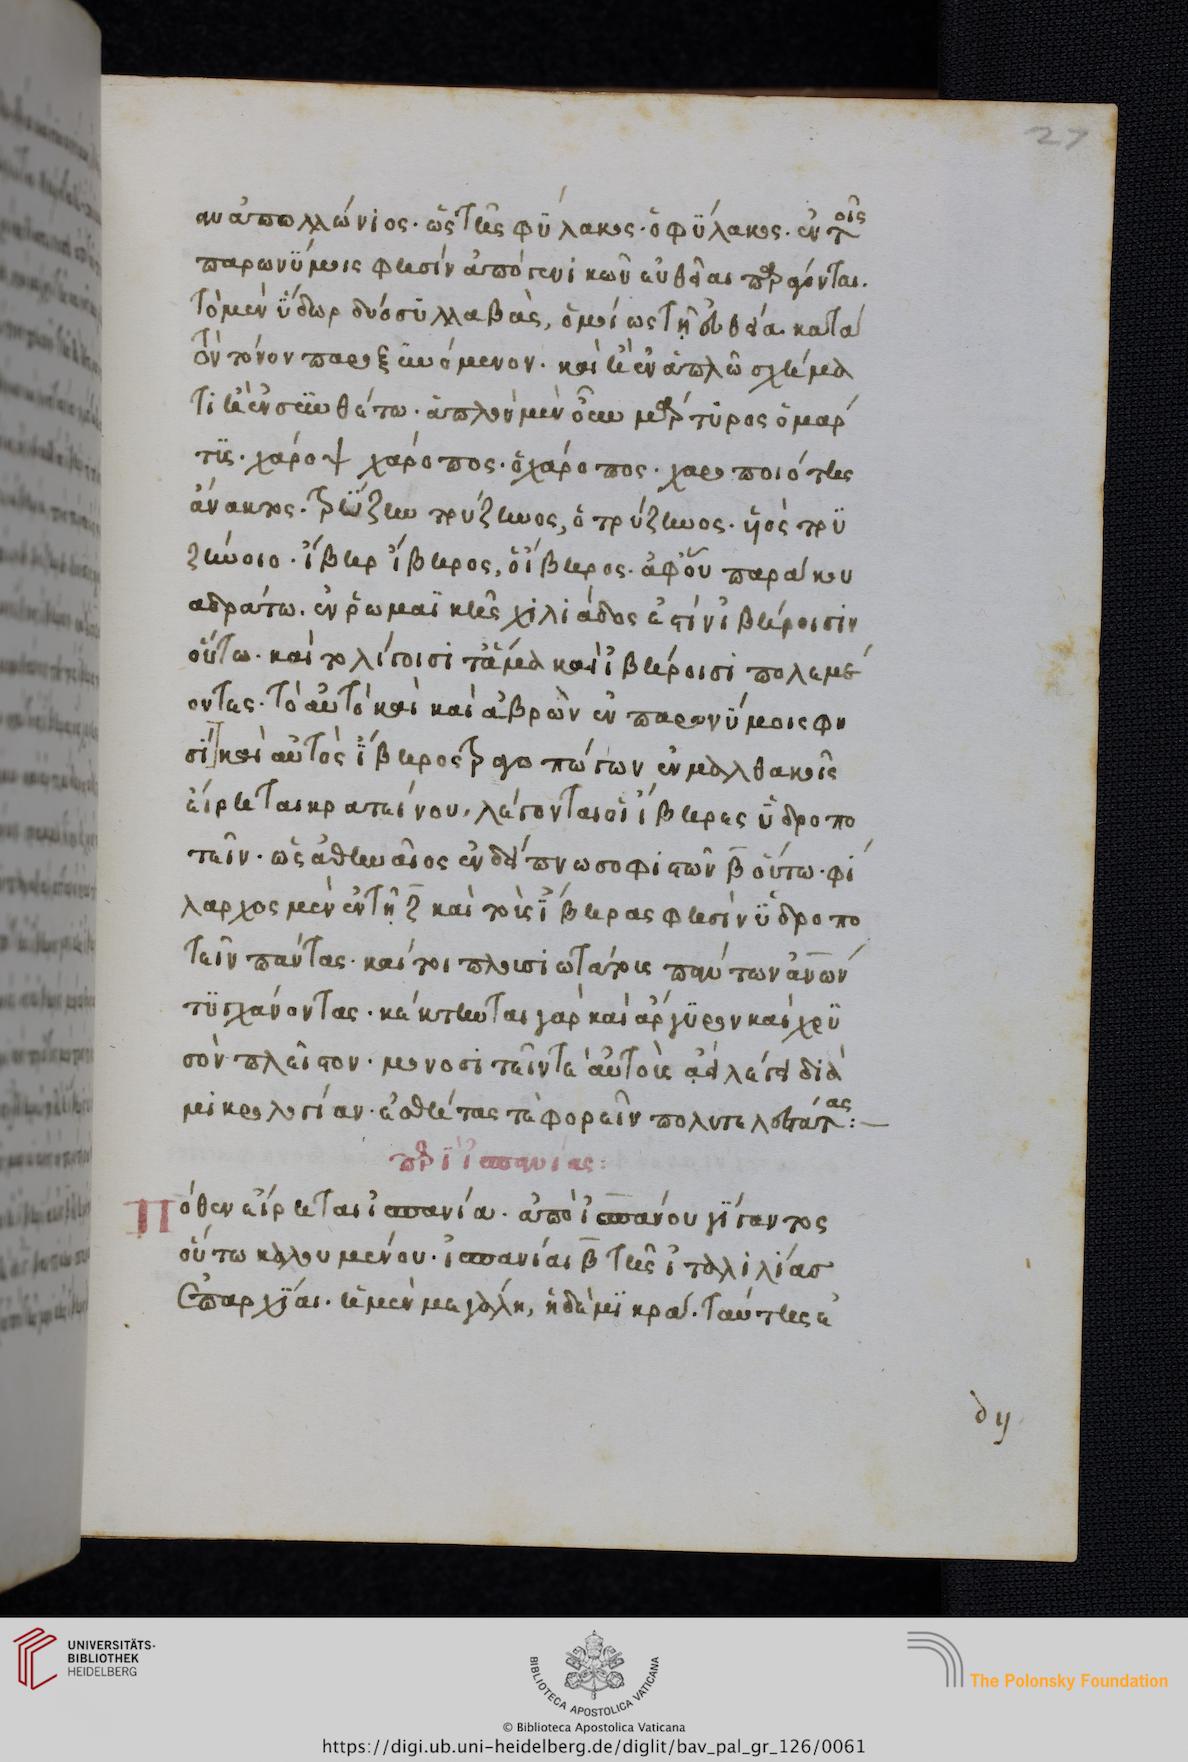 27
αν ἀπολλώνιος· ὡς τῆς φύλακος· ὁ φύλακος· ἐν τοῖς
παρωνύμοις φησὶν ἀπὸ γενικῶν εὐθεῖαι παράγονται.
τὸ μὲν ὑπὲρ δύο συλλαβὰς, ὁμοίως τῇ εὐθεία κατὰ
τὸν τόνον παροξυνόμενον· καὶ ἢ ἐν ἁπλῶ σχήμα
τι ἢ ἐν συνθέτω· ἁπλοῦν μὲν οὖν μάρτυρος ὁ μάρ
τυς· χάροψ χάροπος· ὁ χάροπος· χαροποιό της
ἄνακτος· τρύζην τρύζηνος, ὁ τρύζηνος· ἧς τρυ
ζήνοιο· ἴβηρ ἴβηρος, ὁ ἴβηρος· ἀφ' οὗ παρὰ κου
αδράτω. ἐν ῥωμαϊκῆς χιλιάδος ἐστὶν ἰβήροισιν
οὕτω· καί τοι λίγοισί θ' ἅμα καὶ ἰβήροισι πολεμέ
οντες· τὸ αὐτὸ καὶ καὶ ἄβρων ἐν παρωνύμοις φη
σί καὶ αὐτὸς ἴβηρος τραγοπώγων ἐν μαλθακοῖς
εἴρηται κρατείνου. λέγονται οἱ ἴβηρες ὑδροπο
τεῖν· ὡς ἀθήναιος ἐν δειπνοσοφιστῶν β οὕτω· φύ
λαρχος μὲν ἐν τῇ ζ καὶ τοὺς ἴβηρας φησὶν ὑδροπο
τεῖν πάντας· καί τοι πλουσιωτάτους πάντων ἀνῶν
τυγχάνοντας· κέκτηνται γὰρ καὶ ἄργυρον καὶ χρυ
σὸν πλεῖστον· μονοσιτεῖν τε αὐτοὺς ἀεὶ λέγει διὰ
μικρολογίαν· ἐσθῆτας τε φορεῖν πολυτελεστάτας:—
περὶ ἱσπανίας:
Πόθεν εἴρηται ἱσπανία· ἀπὸ ἱσπάνου γίγαντος
οὕτω καλουμένου· ἱσπανίαι β τῆς ἰταλίας
ἐπαρχίαι· ἡ μὲν μεγάλη, ἡ δὲ μικρά. ταύτης ἐ
UNIVERSITÄTS-
BIBLIOTHEK
HEIDELBERG
BIBLIOTECA APOSTOLICA VATICANA
The Polonsky Foundation
© Biblioteca Apostolica Vaticana
https://digi.ub.uni-heidelberg.de/diglit/bav_pal_gr_126/0061